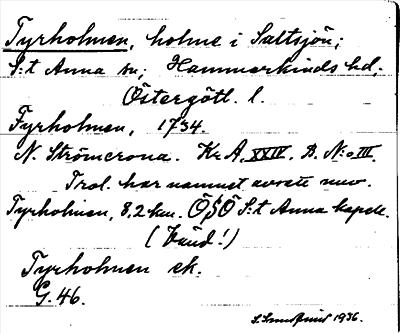 Tyrholmen, holme i Saltsjön;
S:t Anna sn; Hammarkinds hd,
Östergötl. l.
Fyrholmen, 1734.
N. Strömcrona. Kr. A. XXIV. B. N:o III.
Trol. har namnet avsett nuv.
Tyrholmen, 8,2 km. ÖSÖ S:t Anna kapell.
(Vänd!)
Tyrholmen ek.
G. 46.
1936.